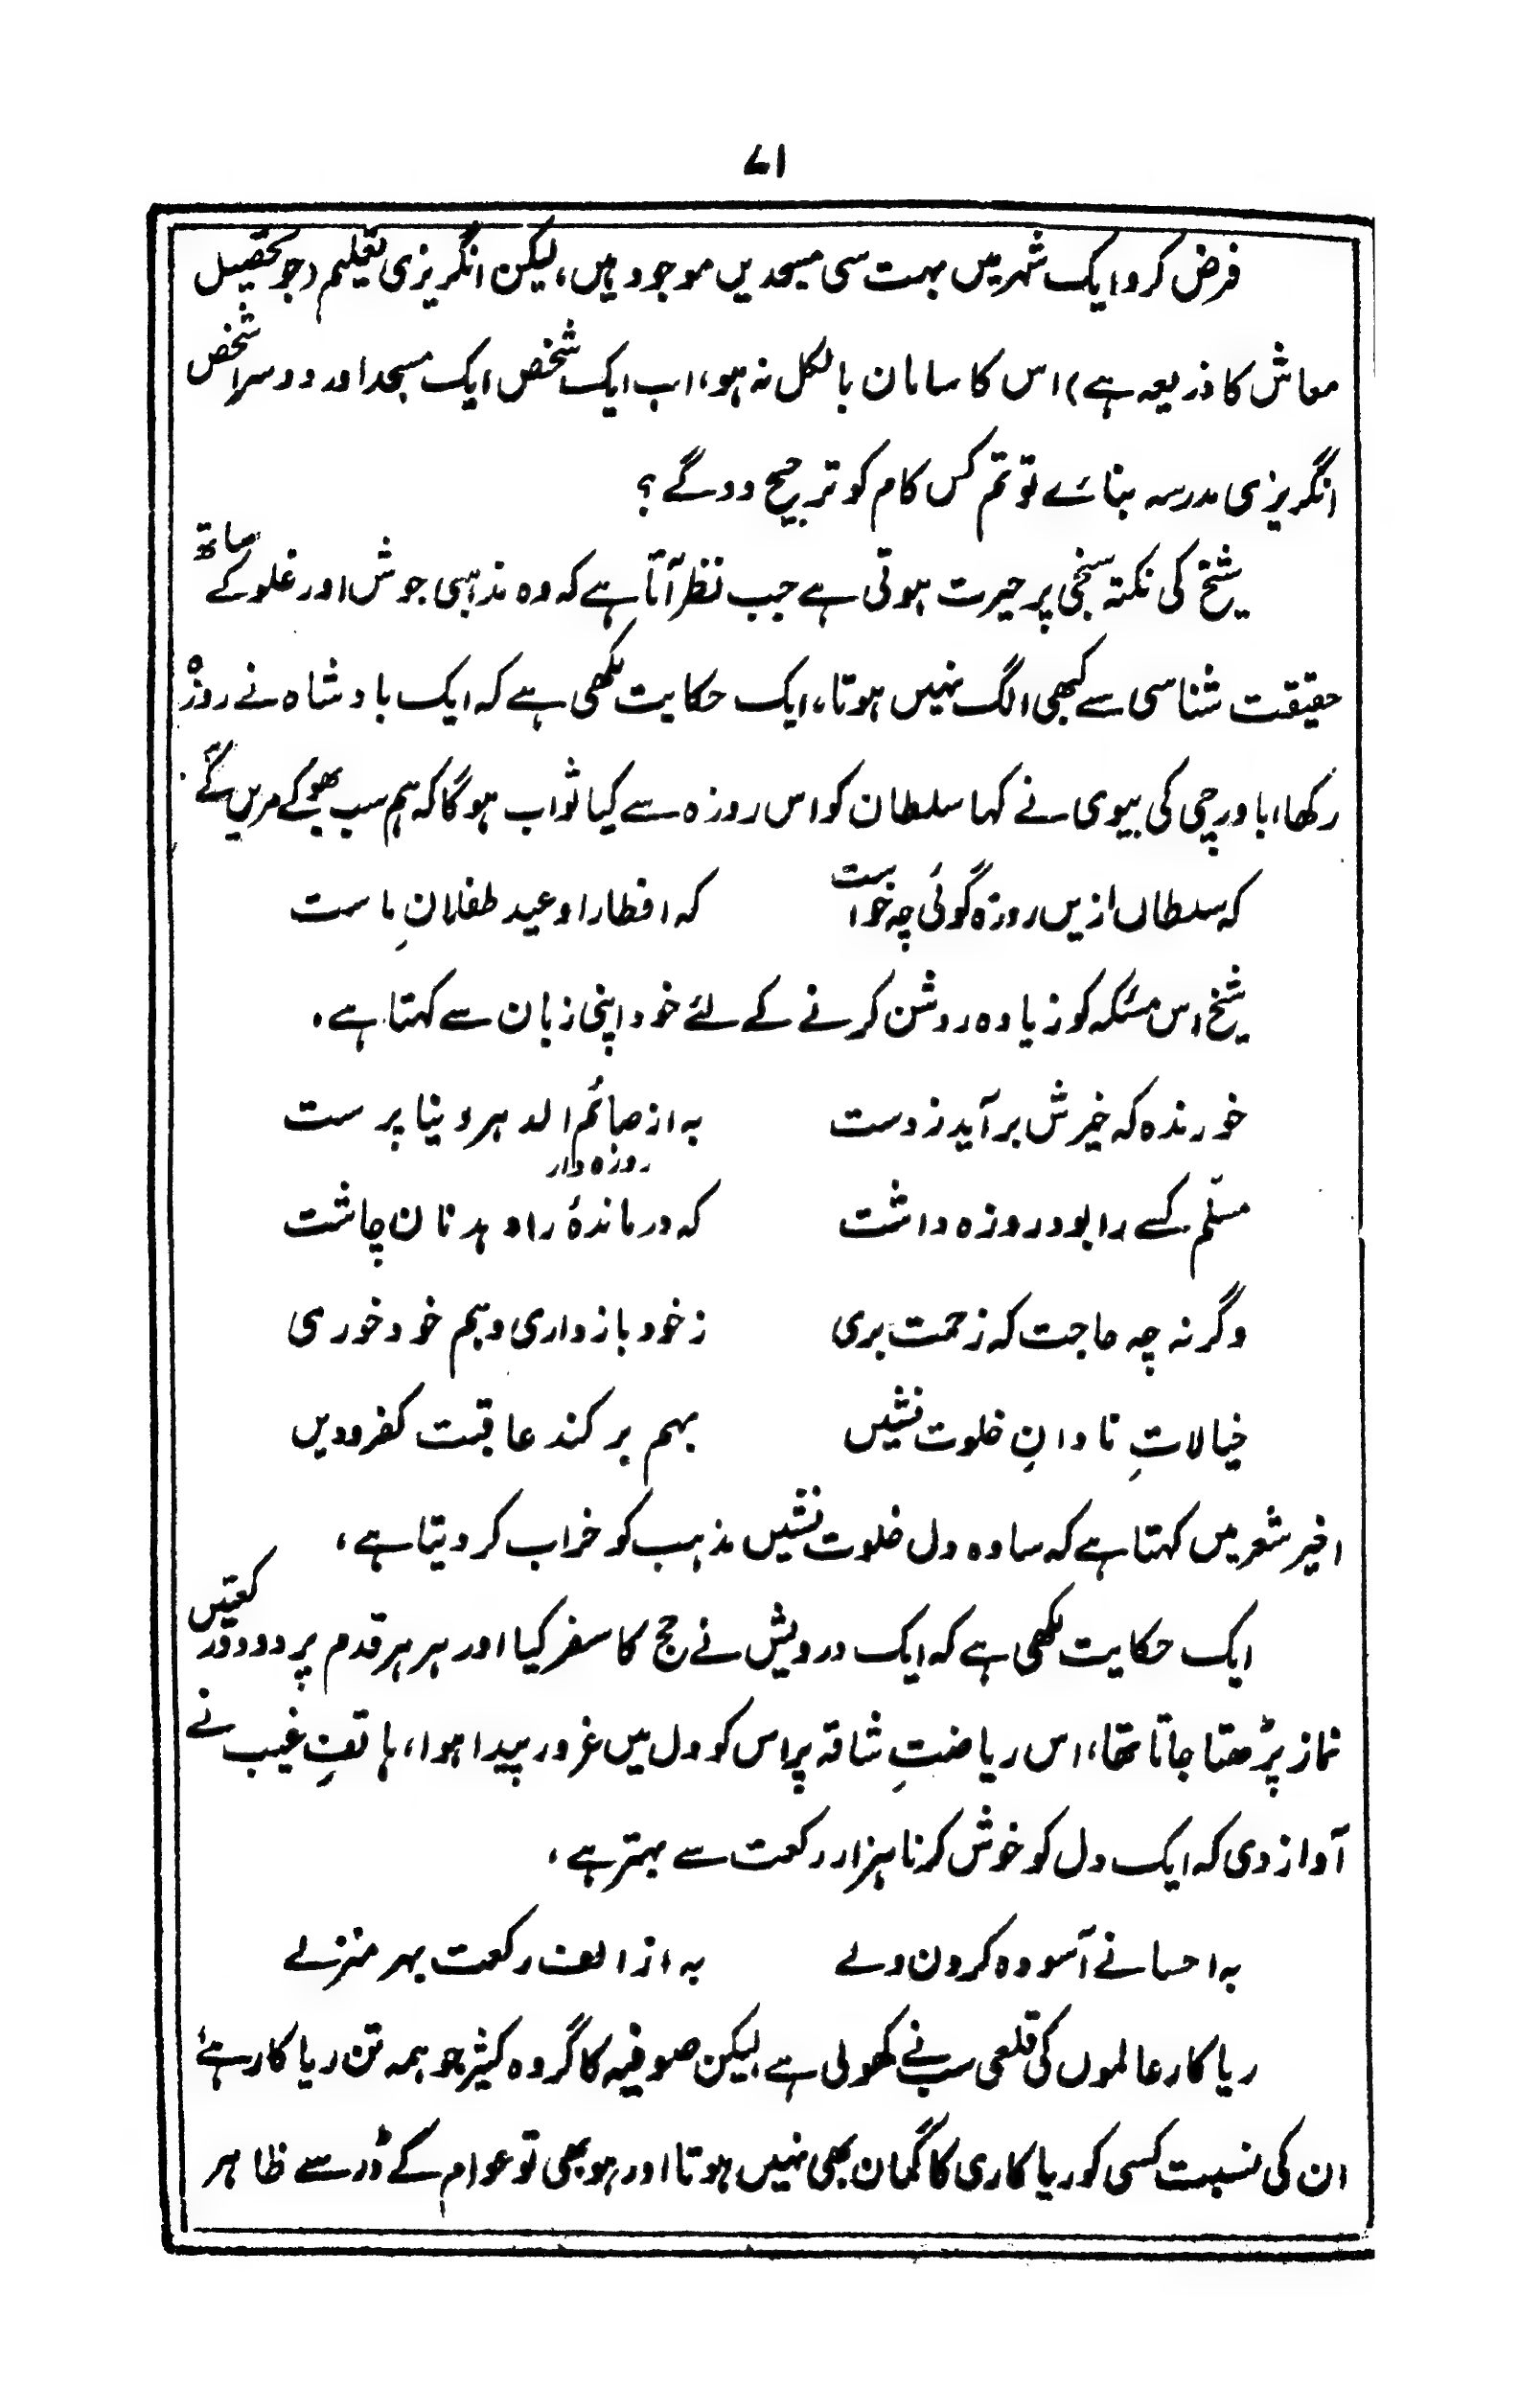 ۷۱
فرض کرو ایک شہر میں بہت سی مسجدیں موجود ہیں، لیکن انگریزی تعلیم (جو تحصیل
معاش کا ذریعہ ہے) اس کا سامان بالکل نہ ہو، اب ایک شخص ایک مسجد اور دوسرا شخص
انگریزی مدرسہ بنائے تو تم کس کام کو ترجیح دو گے ؟
شیخ کی نکتہ سنجی پر حیرت ہوتی ہے جب نظر آتا ہے کہ وہ مذہبی جوش اور غلو کے ساتھ
حقیقت شناسی سے کبھی الگ نہیں ہوتا، ایک حکایت لکھی ہے کہ ایک بادشاہ نے روزہ
رکھا، باورچی کی بیوی نے کہا سلطان کو اس روزہ سے کیا ثواب ہوگا کہ ہم سب بھوکے مریں گے
کہ سلطاں ازیں روزہ گوئی چہ خواست کہ افطار او عید طفلانِ ماست
شیخ اس مسئلہ کو زیادہ روشن کرنے کے لئے خود اپنی زبان سے کہتا ہے۔
خورندہ کہ خیرش برآید ز دست بہ از صائم الدہر دنیا پرست
روزہ دار
مسلّم کسے را بود روزہ داشت کہ درماندۂ را دہد نان چاشت
وگرنہ چہ حاجت کہ زحمت بری ز خود باز داری و ہم خود خوری
خیالاتِ نادانِ خلوت نشیں بہم بر کند عاقبت کفر و دیں
اخیر شعر میں کہتا ہے کہ سادہ دل خلوت نشیں مذہب کو خراب کر دیتا ہے،
ایک حکایت لکھی ہے کہ ایک درویش نے حج کا سفر کیا اور ہر ہر قدم پر دو دو رکعتیں
نماز پڑھتا جاتا تھا، اس ریاضتِ شاقہ پر اس کو دل میں غرور پیدا ہوا، ہاتفِ غیب نے
آواز دی کہ ایک دل کو خوش کرنا ہزار رکعت سے بہتر ہے،
بہ احسانے آسودہ کردن دلے بہ از الف رکعت بہر منزلے
ریاکار عالموں کی قلعی سب نے کھولی ہے لیکن صوفیہ کا گروہ کثیر جو ہمہ تن ریا کار ہے
ان کی نسبت کسی کو ریاکاری کا گمان بھی نہیں ہوتا اور ہو بھی تو عوام کے ڈر سے ظاہر